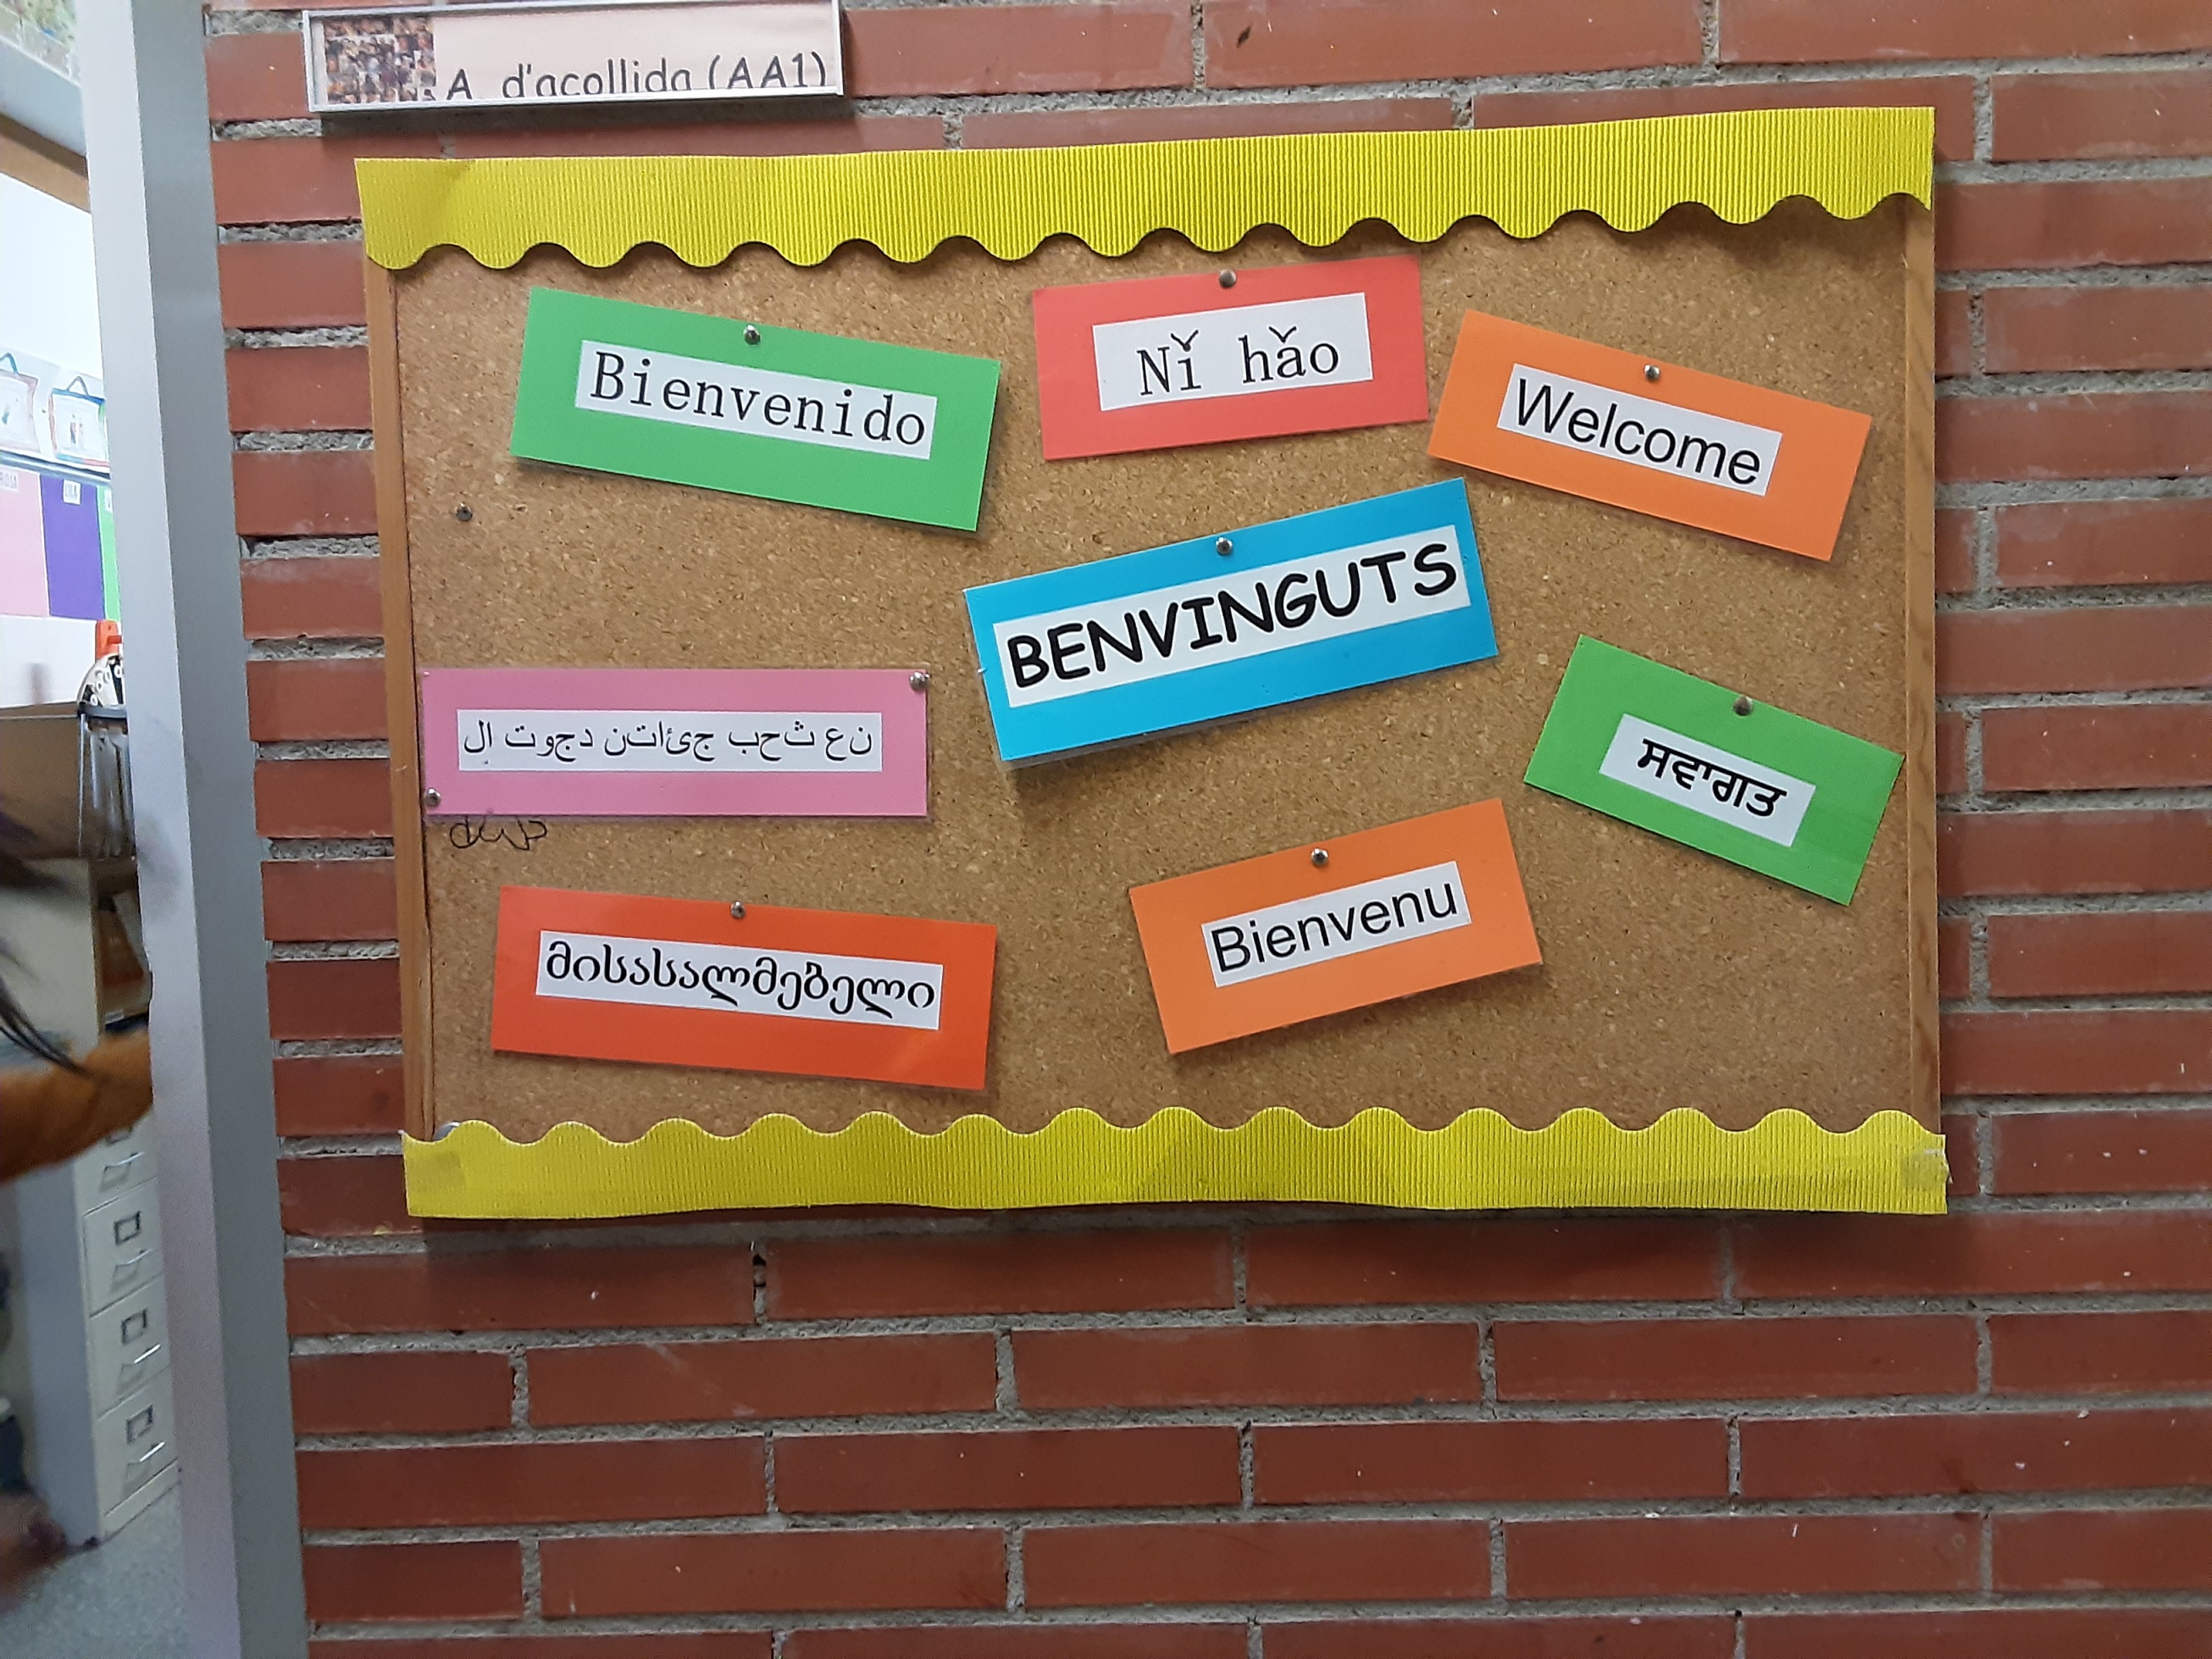 A d'acollida (AA1)
Bienvenido
Nǐ hǎo
Welcome
BENVINGUTS
نع ثحب جئاتن دجوت إل
ਸਵਾਗਤ
მისასალმებელი
Bienvenu